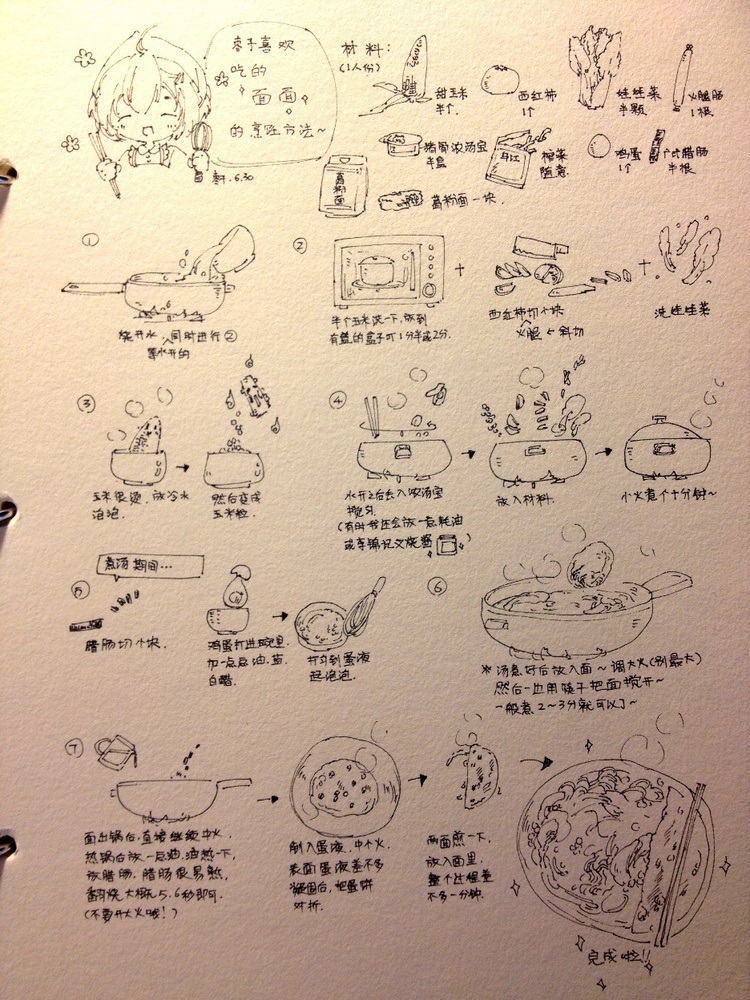 枣子喜欢
吃的
面面
的烹饪方法~
枣子.6.30
材料:
(1人份)
甜玉米
半个.
西红柿
1个
娃娃菜
半颗
火腿肠
1根
猪骨浓汤宝
半盒
榨菜
随意.
鸡蛋
1个
广式腊肠
半根
葛粉面
葛粉面一块.
①
烧开水,同时进行②
等水开的
②
半个玉米洗一下,放到
有盖的盒子叮1分半或2分.
+
西红柿切小块
火腿斜切
+
洗娃娃菜
③
玉米很烫,放冷水
泡泡.
然后变成
玉米粒.
④
水开之后丢入浓汤宝
搅匀.
(有时我还会放一点蚝油
或李锦记叉烧酱
放入材料.
小火煮个十分钟~
⑤
煮汤期间...
腊肠切小块.
鸡蛋打进碗里
加一点点油.盐.
白醋.
打匀到蛋液
起泡泡.
⑥
※汤煮好后放入面~调大火(别最大)
然后一边用筷子把面搅开~
一般煮2~3分就可以了~
⑦
面出锅后,直接继续中火,
热锅后放一点油,油热一下,
放腊肠,腊肠很易熟,
翻烧大概5.6秒即可.
(不要开大火哦!)
倒入蛋液,中小火,
表面蛋液差不多
凝固后,把蛋饼
对折.
两面煎一下,
放入面里.
整个过程差
不多一分钟.
完成啦!!